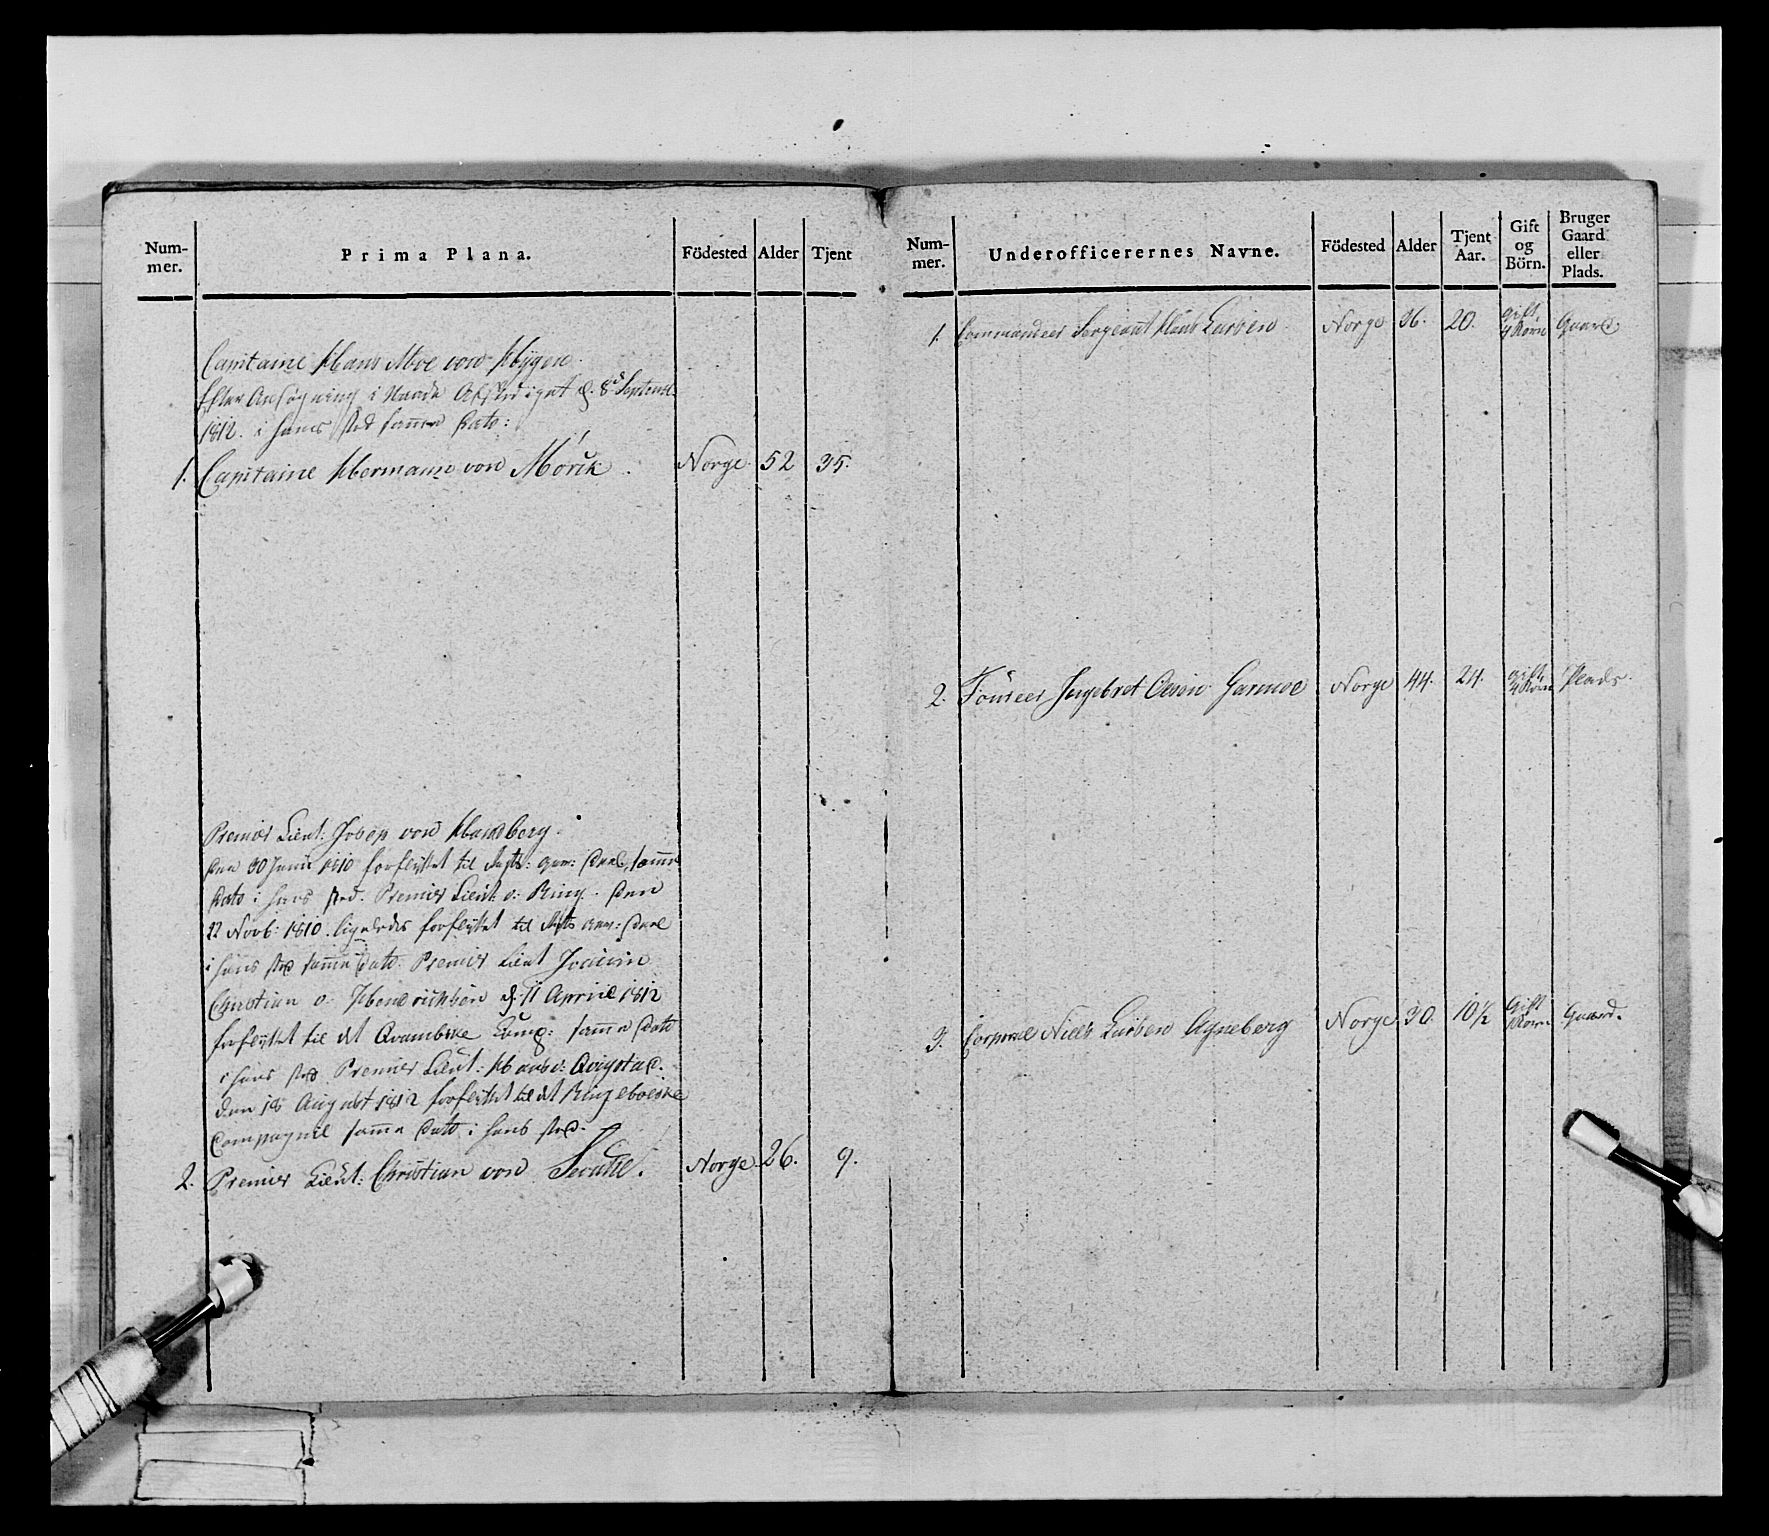 Num-
mer.
Prima Plana.
Födested
Alder
Tjent
Capitaine Hans Moe von Hygen.
Efter Ansøgning i Naade Afskediget d. 8de Septembr
1812. i hans sted samme Dato:
1. Capitaine Hermann von Mörck. Norge. 52 35.
Premier Lieut: von
den 30 Junii 1810 forflyttet til samme
Dato i hans sted. Premier Lieut v: Ring. den
22 Novb: 1810. ligeledes forflyttet til
i hans sted samme Dato. Premier Lieut Joacim
Christian v: Hendrichsen d: 11 April 1812
forflyttet til det Qvambske Comp: samme Dato
i hans sted Premier Lieut: Hans v: Qvigstad.
den 18 August 1812 forflyttet til det Ringeboeske
Compagnie samme Dato i hans sted.
2. Premier Lieut: Christian von Norge 26. 9.
Num-
mer.
Underofficerernes Navne.
Födested
Alder
Tjent
Aar.
Gift
og
Börn.
Bruger
Gaard
eller
Plads.
1. Commandeer Sergeant Larsen Norge 36. 20. gift 4 Börn Gaard
2. Foureer Ingebret Olsen Garmoe Norge 44. 24. gift 4 Börn Plads.
3. Corporal Niels Larsen Agneberg Norge 30. 10½ Gift Börn Gaard.